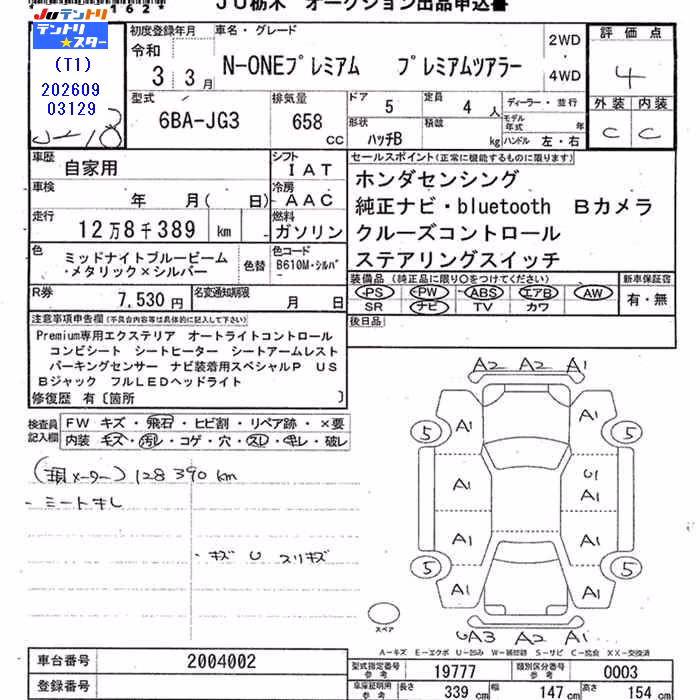 162*
JU栃木 オークション出品申込書
JUテントリ
テントリ★スター
(T1)
202609
03129
初度登録年月
令和
3 3月
車名・グレード
N-ONEプレミアム プレミアムツアラー
2WD
・
4WD
評価点
4
外装 内装
C C
型式
6BA-JG3
排気量
658
cc
ドア
5
定員
4 人
形状
ハッチB
積載
kg
ディーラー・並行
モデル年式 年
ハンドル 左・右
車歴
自家用
シフト
IAT
車検
年 月( 日)
冷房
AAC
走行
12万8千389 km
燃料
ガソリン
色
ミッドナイトブルービーム
・メタリック×シルバー
色替
色コード
B610M・シルバ
R券
7,530円
名変通知期限
月 日
セールスポイント(正常に機能するものに限ります)
ホンダセンシング
純正ナビ・bluetooth Bカメラ
クルーズコントロール
ステアリングスイッチ
装備品(純正品に限り○をつけてください)
PS ・ PW ・ ABS ・ エアB ・ AW
SR ナビ ・ TV カワ
新車保証書
有・無
後日品
注意事項申告欄(不具合内容等は具体的に記入して下さい)
Premium専用エクステリア オートライトコントロール
コンビシート シートヒーター シートアームレスト
パーキングセンサー ナビ装着用スペシャルP US
Bジャック フルLEDヘッドライト
修復歴 有〔箇所 〕
検査員
記入欄
FW キズ・飛石・ヒビ割・リペア跡・×要
内装 キズ・汚レ・コゲ・穴・スレ・キレ・破レ
(現メーター) 128390km
- シートキレ
- キズ U スリキズ
A2 A2 A1
A1 A1
5 5
A1 U1
A1
A1 A1
5 5
A1 A1
UA3 A2 A1
スペア
A-キズ E-エクボ U-凹み W-補修跡 S-サビ C-腐食 XX-交換済
車台番号
2004002
登録番号
型式指定番号
参考
19777
類別区分番号
参考
0003
車庫証明用
参考
長さ
339 cm
幅
147 cm
高さ
154 cm